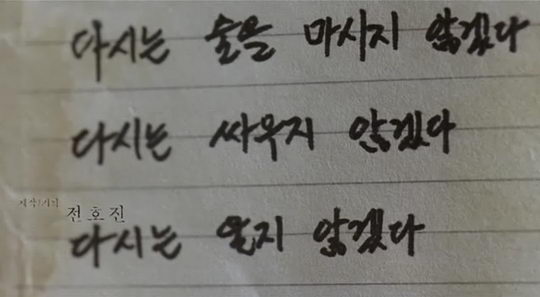 다시는 술을 마시지 않겠다
다시는 싸우지 않겠다
전호진
다시는 울지 않겠다